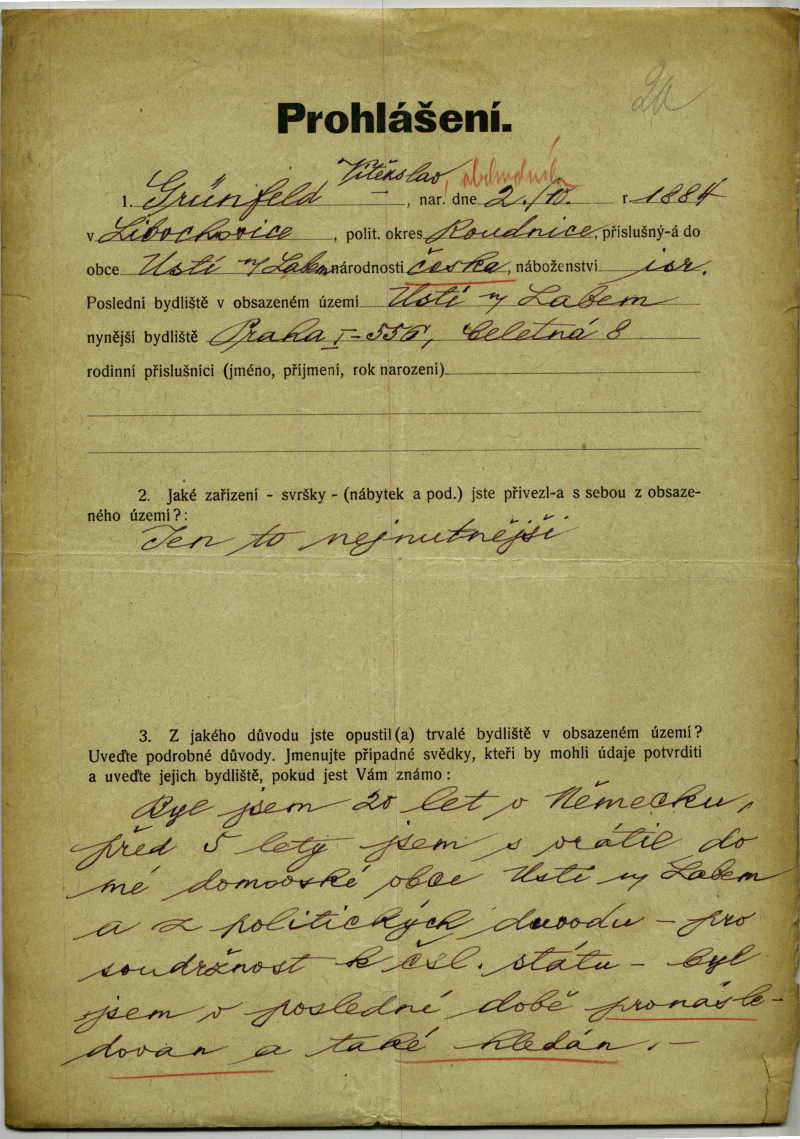 2a
Prohlášení.
Vítězslav, obchodník
1. Grünfeld, nar. dne 2./10. r. 1884
v Libochovice, polit. okres Roudnice, příslušný-á do
obce Ústí n/Labem národnosti česka, náboženství isr.
Poslední bydliště v obsazeném území Ústí n/Labem
nynější bydliště Praha I-556, Celetná 8
rodinní příslušníci (jméno, příjmení, rok narození)
2. Jaké zařízení - svršky - (nábytek a pod.) jste přivezl-a s sebou z obsaze-
ného území?:
Jen to nejnutnější
3. Z jakého důvodu jste opustil(a) trvalé bydliště v obsazeném území?
Uveďte podrobné důvody. Jmenujte případné svědky, kteří by mohli údaje potvrditi
a uveďte jejich bydliště, pokud jest Vám známo:
Byl jsem 20 let v Německu,
před 5 lety jsem s vrátil do
mé domovské obce Ústí n/Labem
a z politických duvodu - pro
soudržnost k čsl. státu - byl
jsem v poslední době pronásle-
dovan a také hledán. -